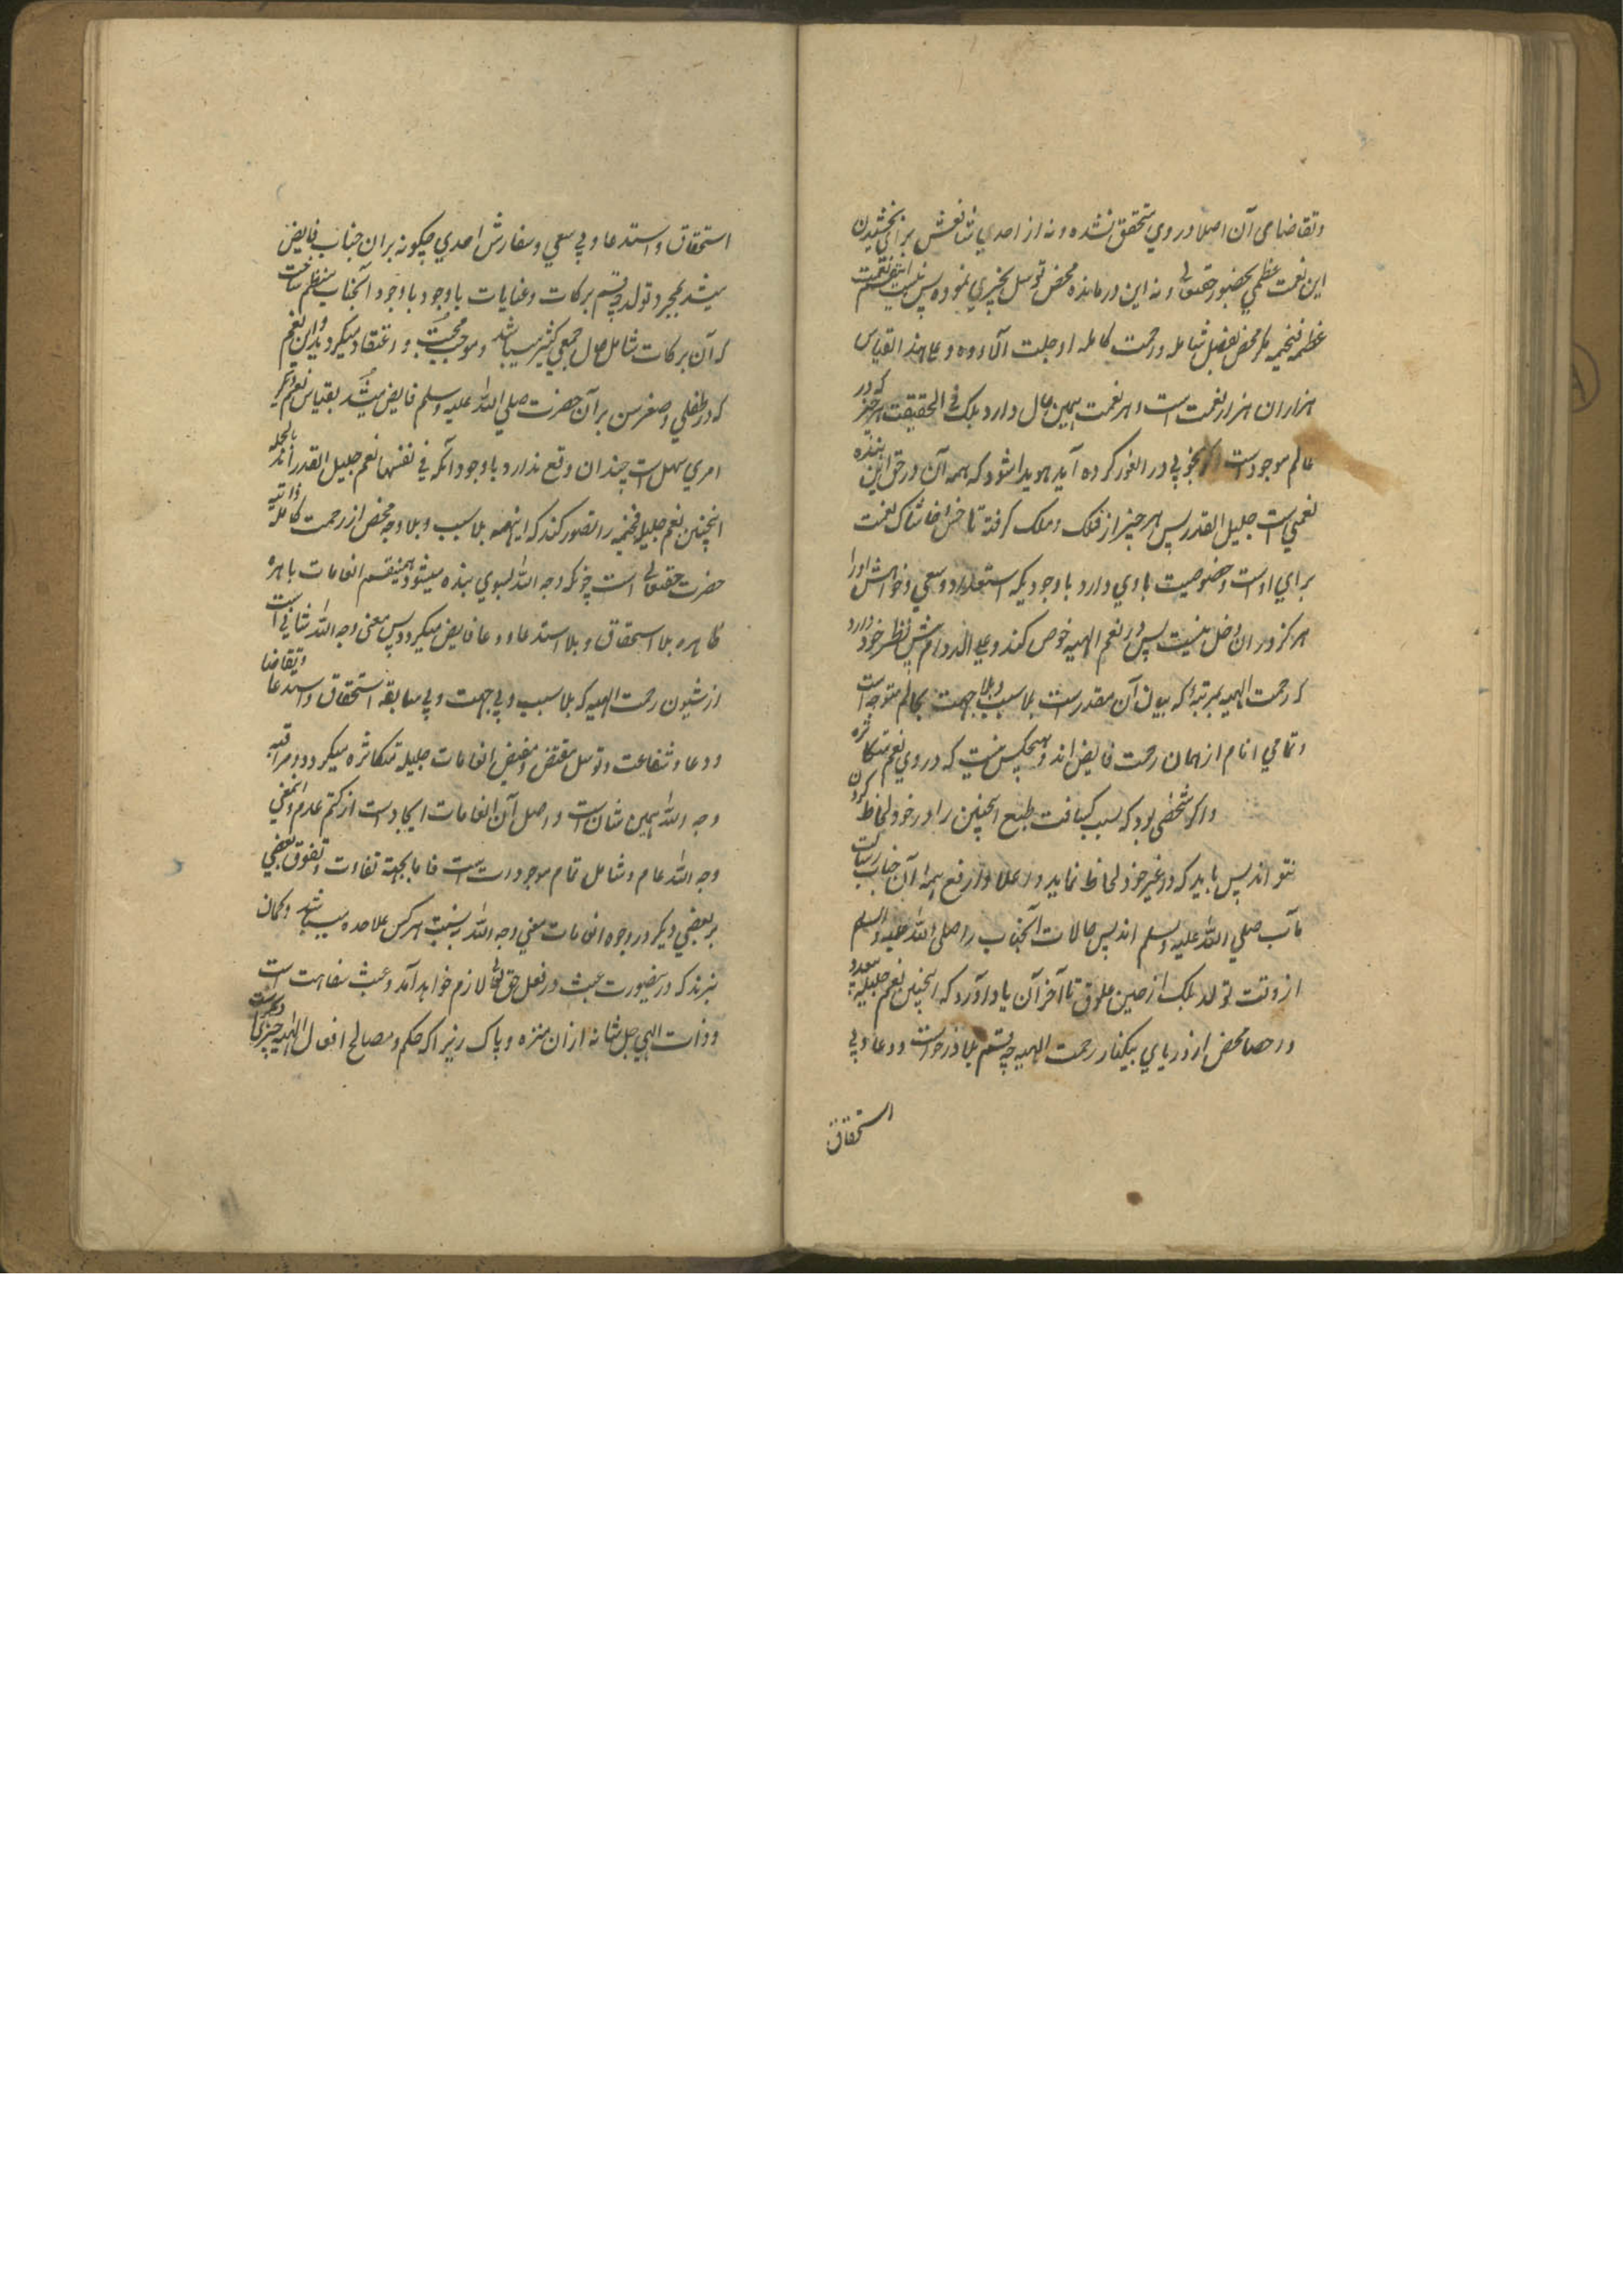 وتقاضای آن اصلا در وي متحقق نشده و نه از احدي شفاعتش براي بخشيدن
اين نعمت عظمي بحضور حقتعالی و نه اين درمانده محض توسل بخيري نموده پس نيست اينقسم نعمت
عظيمه فخيمه مگر محض بفضل شامله ورحمت كامله او جلت آلاؤه و علی هذا القياس
هزاران هزار نعمت است و هر نعمت همين حال دارد بلكه في الحقيقت هر چيز كه در
عالم موجود است اگر بخوبي در ان غور كرده آيد هويدا شود كه همه آن در حق اين بنده
نعمتي است جليل القدر پس هر چيز از فلك و ملك گرفته تا خس و خاشاك نعمت
براي اوست و خصوصيت باوي دارد باوجوديكه استعداد و سعي و خواهش او را
هرگز در ان دخل نيست پس در نعم الهيه خوض كند و علی الدوام پيش نظر خود دارد
كه رحمت الهيه بمرتبه كه بيرون آن مقدر است بلا سبب و بلا جهت بعالم متوجه است
وتمامي انام از همان رحمت فايض اند و هيچكس نيست كه در وي نعم متكاثره
واگر شخصي بود كه بسبب كثافت طبع اينچنين را در خود لحاظ كردن
نتواند پس بايد كه در غير خود لحاظ نمايد و اعلا و ارفع همه آن جناب رسالت
مآب صلي الله عليه وسلم اند پس حالات آنجناب را صلی الله عليه وسلم
از وقت تولد بلكه از حين علوق تا آخر آن ياد آورد كه اينچنين نعم جليله
 محض از درياي بيكنار رحمت الهيه چه قسم بلا درخواست و دعا و بي
استحقاق
استحقاق و استدعا و بي سعي و سفارش احدي چگونه بران جناب فايض
ميشد بمجرد تولد چه قسم بركات و عنايات باوجود باوجود آنجناب منظم ساخت
كه آن بركات شامل حال جمعي كثير ميباشد و موجب محبت و اعتقاد ميگرديد و اين نعم
كه در طفلي و صغر سن بر آن حضرت صلي الله عليه وسلم فايض ميشد بقياس نعم ديگر
امري سهل است چندان وقع ندارد باوجود آنكه في نفسها نعم جليل القدر اند بالجمله
اينچنين نعم جليله فخيمه را تصور كند كه اينهمه بلا سبب و بلا وجه محض از رحمت كامله ذاتيه
حضرت حقتعالی است چونكه وجه الله بسوي بنده ميشود همينقسم انعامات باهره
ظاهره بلا استحقاق و بلا استدعا و دعا فايض ميگردد پس معنی وجه الله شاني است
از شيون رحمت الهيه كه بلا سبب و بي جهت و بي سابقه استحقاق و استدعا و تقاضا
و دعا و شفاعت و توسل مقتضي و مفيض انعامات جليله متكاثره ميگردد و مراقبه
وجه الله همين شان است و اصل آن انعامات ايجاد است از كتم عدم و اينمعني
وجه الله عام و شامل تمام موجودات است فاما بجهة تفاوت و تفوق بعضي
بر بعضي ديگر در وجوه انعامات معني وجه الله به نسبت هر كس علاحده ميباشد و گمان
نبرند كه درينصورت عبث در فعل حق تعالی لازم خواهد آمد و عبث سفاهت است
و ذات الهي جل شانه ازان منزه و پاك زيرا كه حكم و مصالح افعال الهيه چيزي ديگر است